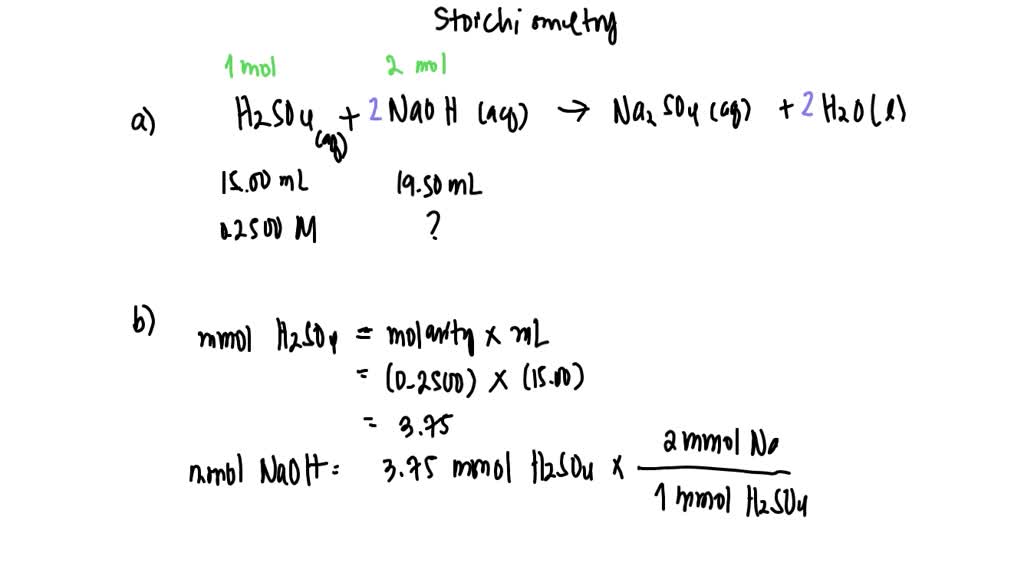 Stoichiometry
1 mol 2 mol
a) H₂SO₄ (aq) + 2 NaOH (aq) → Na₂SO₄ (aq) + 2 H₂O (l)
15.00 mL 19.50 mL
0.2500 M ?
b) mmol H₂SO₄ = molarity × mL
= (0.2500) × (15.00)
= 3.75
mmol NaOH = 3.75 mmol H₂SO₄ × 2 mmol Na
1 mmol H₂SO₄